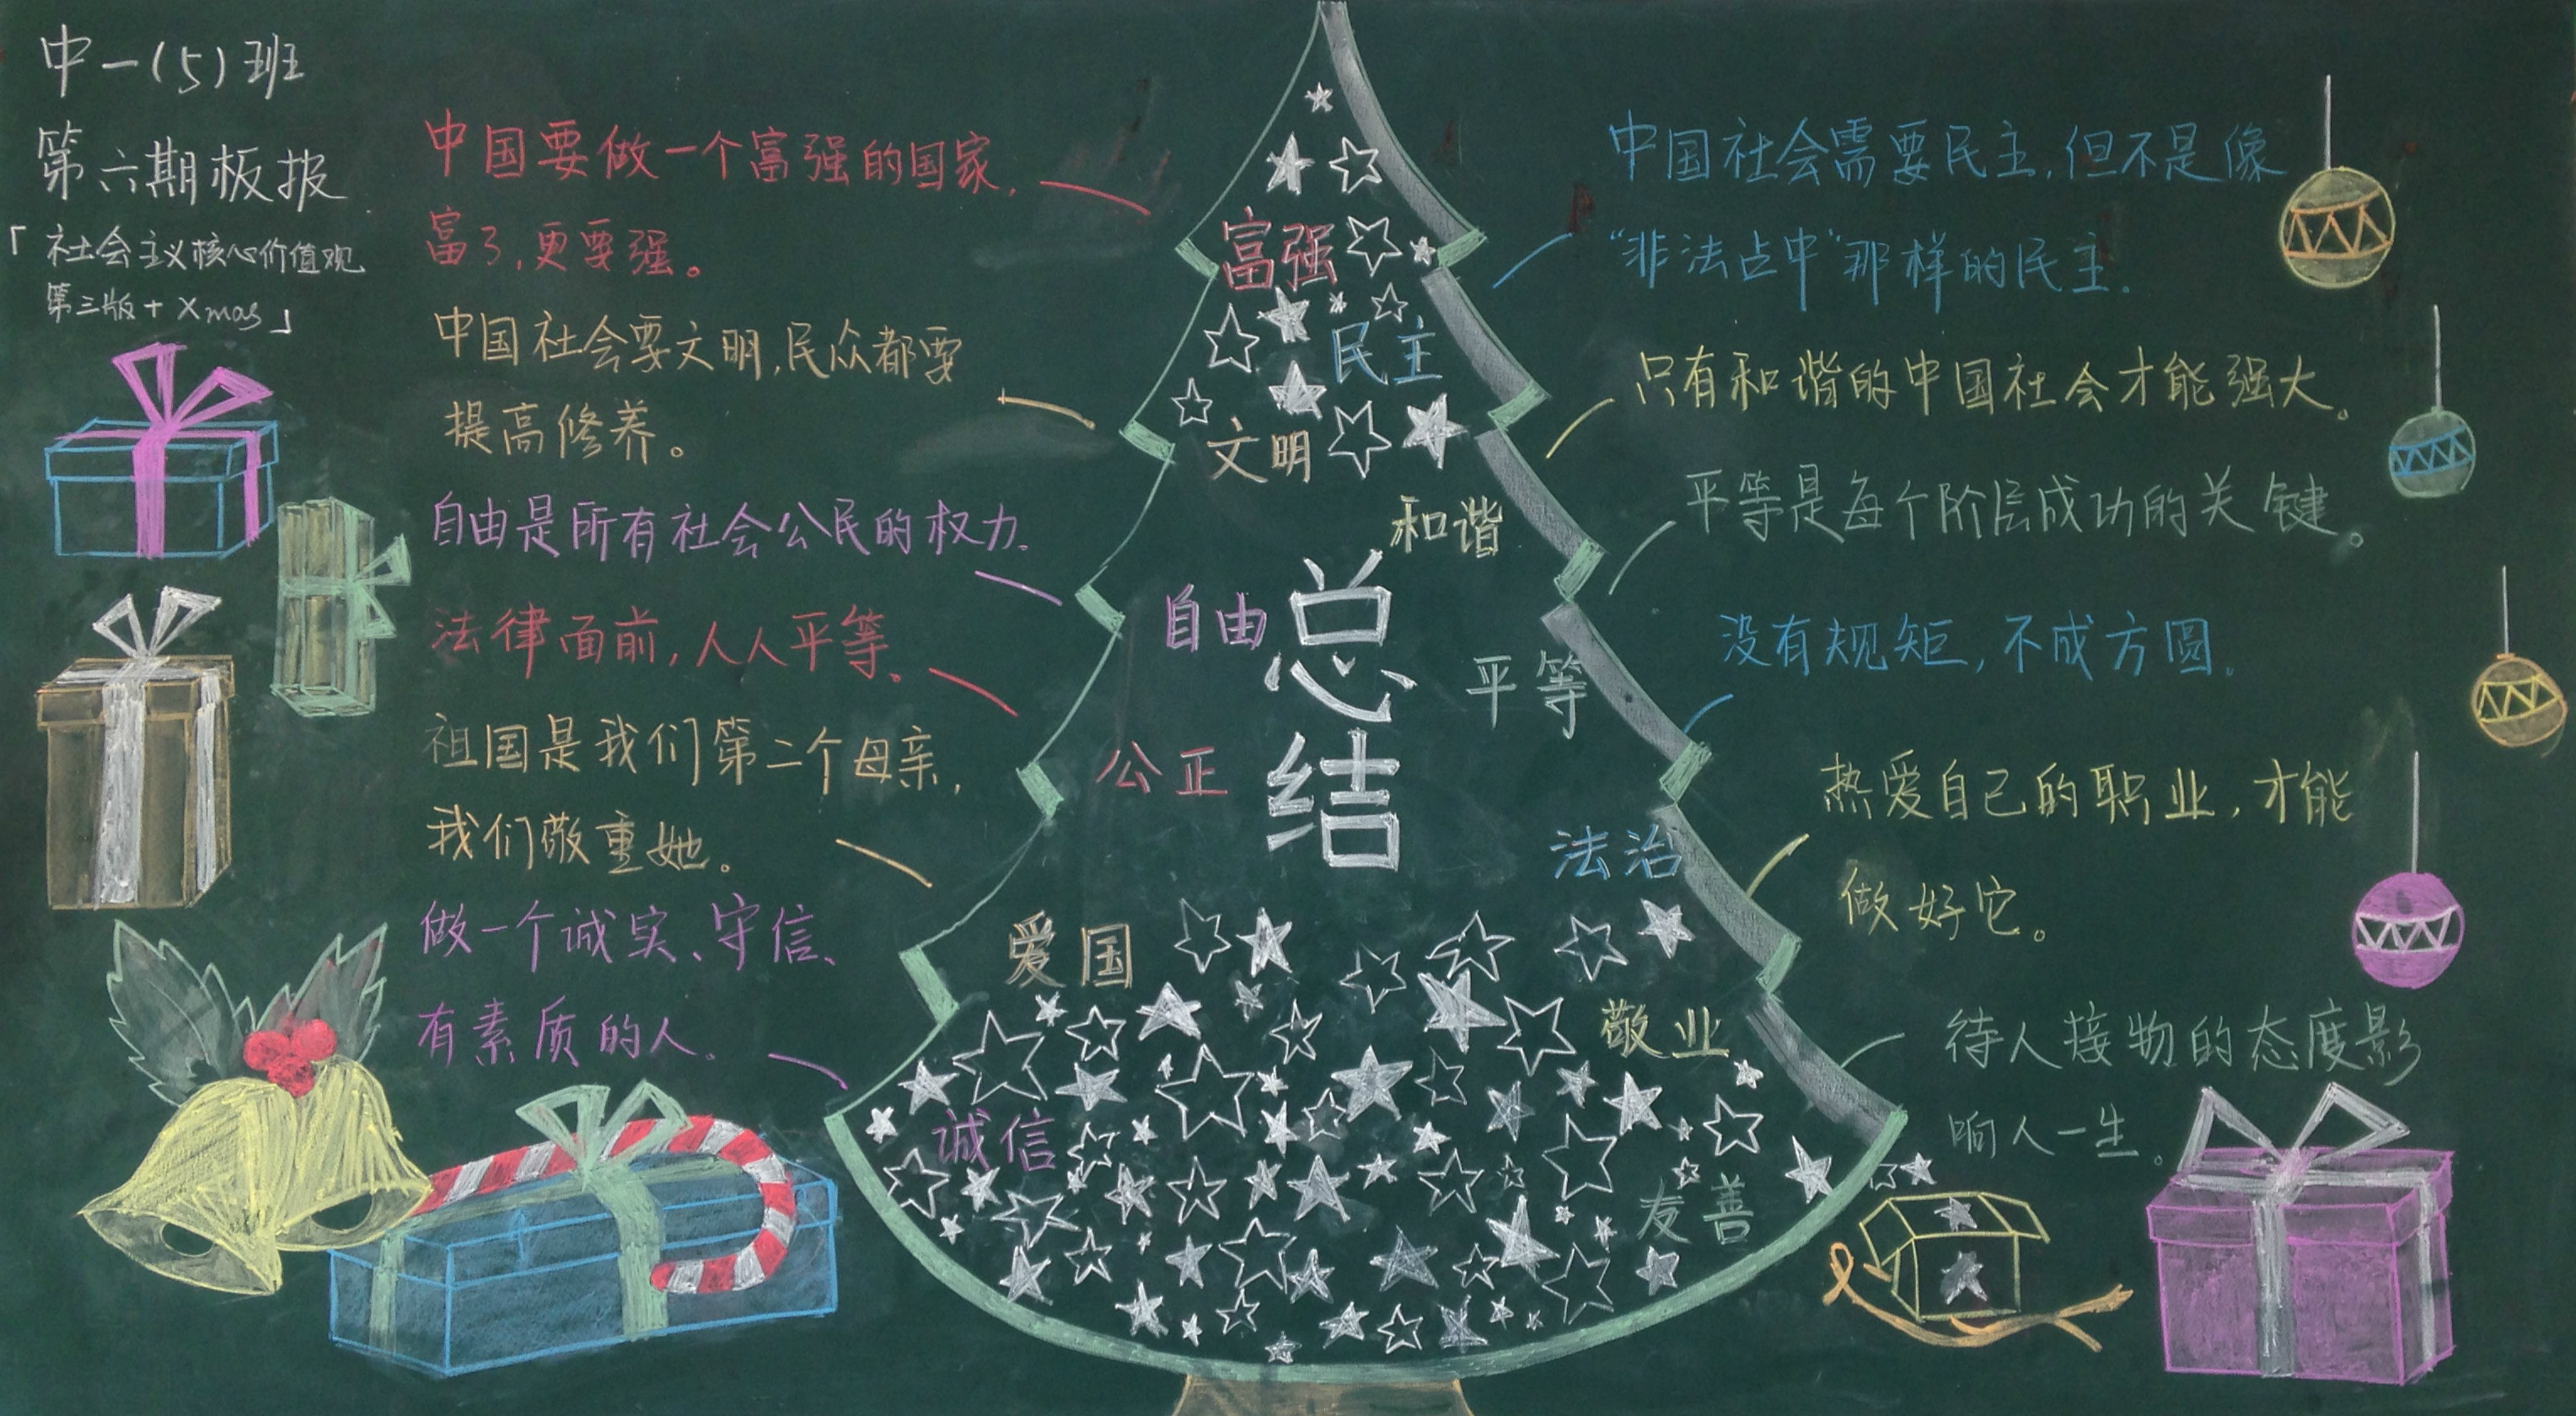 中一(5)班
第六期板报
「社会主义核心价值观
第三版+Xmas」
中国要做一个富强的国家，
富了，更要强。
中国社会要文明，民众都要
提高修养。
自由是所有社会公民的权力。
法律面前，人人平等。
祖国是我们第二个母亲，
我们敬重她。
做一个诚实、守信、
有素质的人。
富强
民主
文明
和谐
自由
平等
公正
法治
爱国
敬业
诚信
友善
总
结
中国社会需要民主，但不是像
“非法占中”那样的民主.
只有和谐的中国社会才能强大。
平等是每个阶层成功的关键。
没有规矩，不成方圆.
热爱自己的职业，才能
做好它。
待人接物的态度影
响人一生。